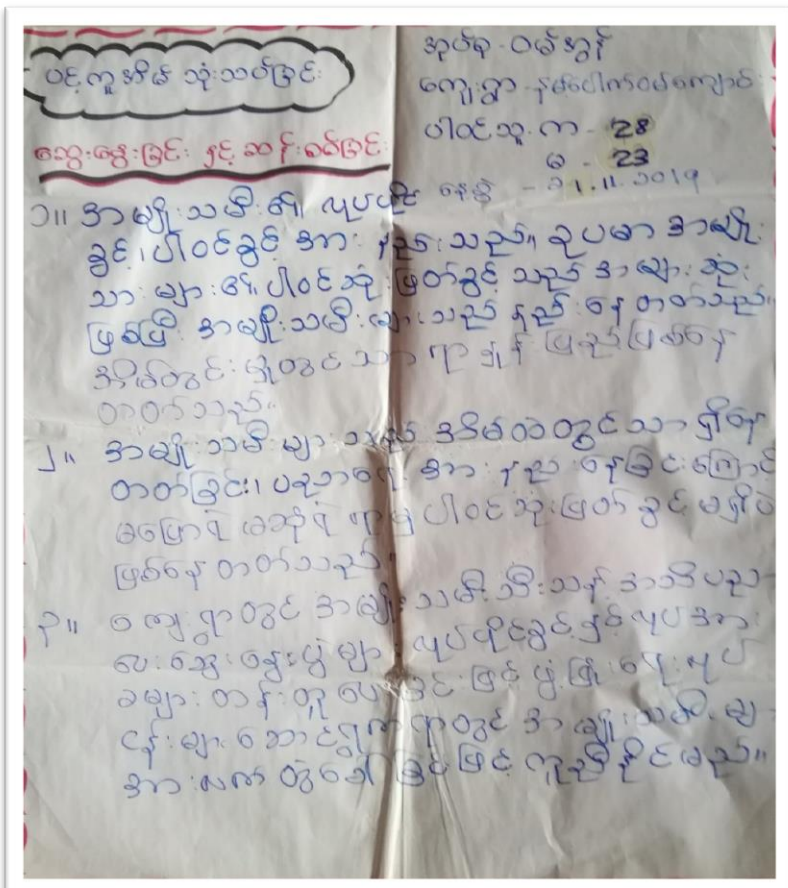 ပင့်ကူအိမ် သုံးသပ်ခြင်း
ဆွေးနွေးခြင်း နှင့် ဆန်းစစ်ခြင်း
အုပ်စု - ဝမ်အွန်
ကျေးရွာ - နမ်ပေါက်ဝမ်ကျောင်း
ပါဝင်သူ - က - 28
မ - 23
နေ့စွဲ - 21.11.2019
၁။ အမျိုးသမီး၏ လုပ်ပိုင်
ခွင့်၊ ပါဝင်ခွင့် အား နည်းသည်။ ဥပမာ အမျိုး
သားများ၏ ပါဝင်ဆုံးဖြတ်ခွင့် သည် အများဆုံး
ဖြစ်ပြီး အမျိုးသမီးများသည် နည်းနေတတ်သည်။
အိမ်တွင်းမှုတွင်သာ
တတ်သည်။
၂။ အမျိုးသမီးများသည် အိမ်ထဲတွင်သာ ရှိနေ
တတ်ခြင်း၊ ပညာရေး အား နည်းနေခြင်းကြောင့်
မပြောရဲ မဆိုရဲ ရာမှ ပါဝင်ဆုံးဖြတ်ခွင့် မရှိပဲ
ဖြစ်နေတတ်သည်။
၃။ ကျေးရွာတွင် အမျိုးသမီးသီးသန့် အသိပညာ
ပေးဆွေးနွေးပွဲများ၊ လုပ်ပိုင်ခွင့်နှင့် လုပ်အား
ခများ တန်းတူပေးခြင်းဖြင့် ဖွံ့ဖြိုးရေးလုပ်
ငန်းများ ဆောင်ရွက်ရာတွင် အမျိုးသမီးများ
အား လက်တွဲခေါ်ခြင်းဖြင့် ကူညီနိုင်မည်။